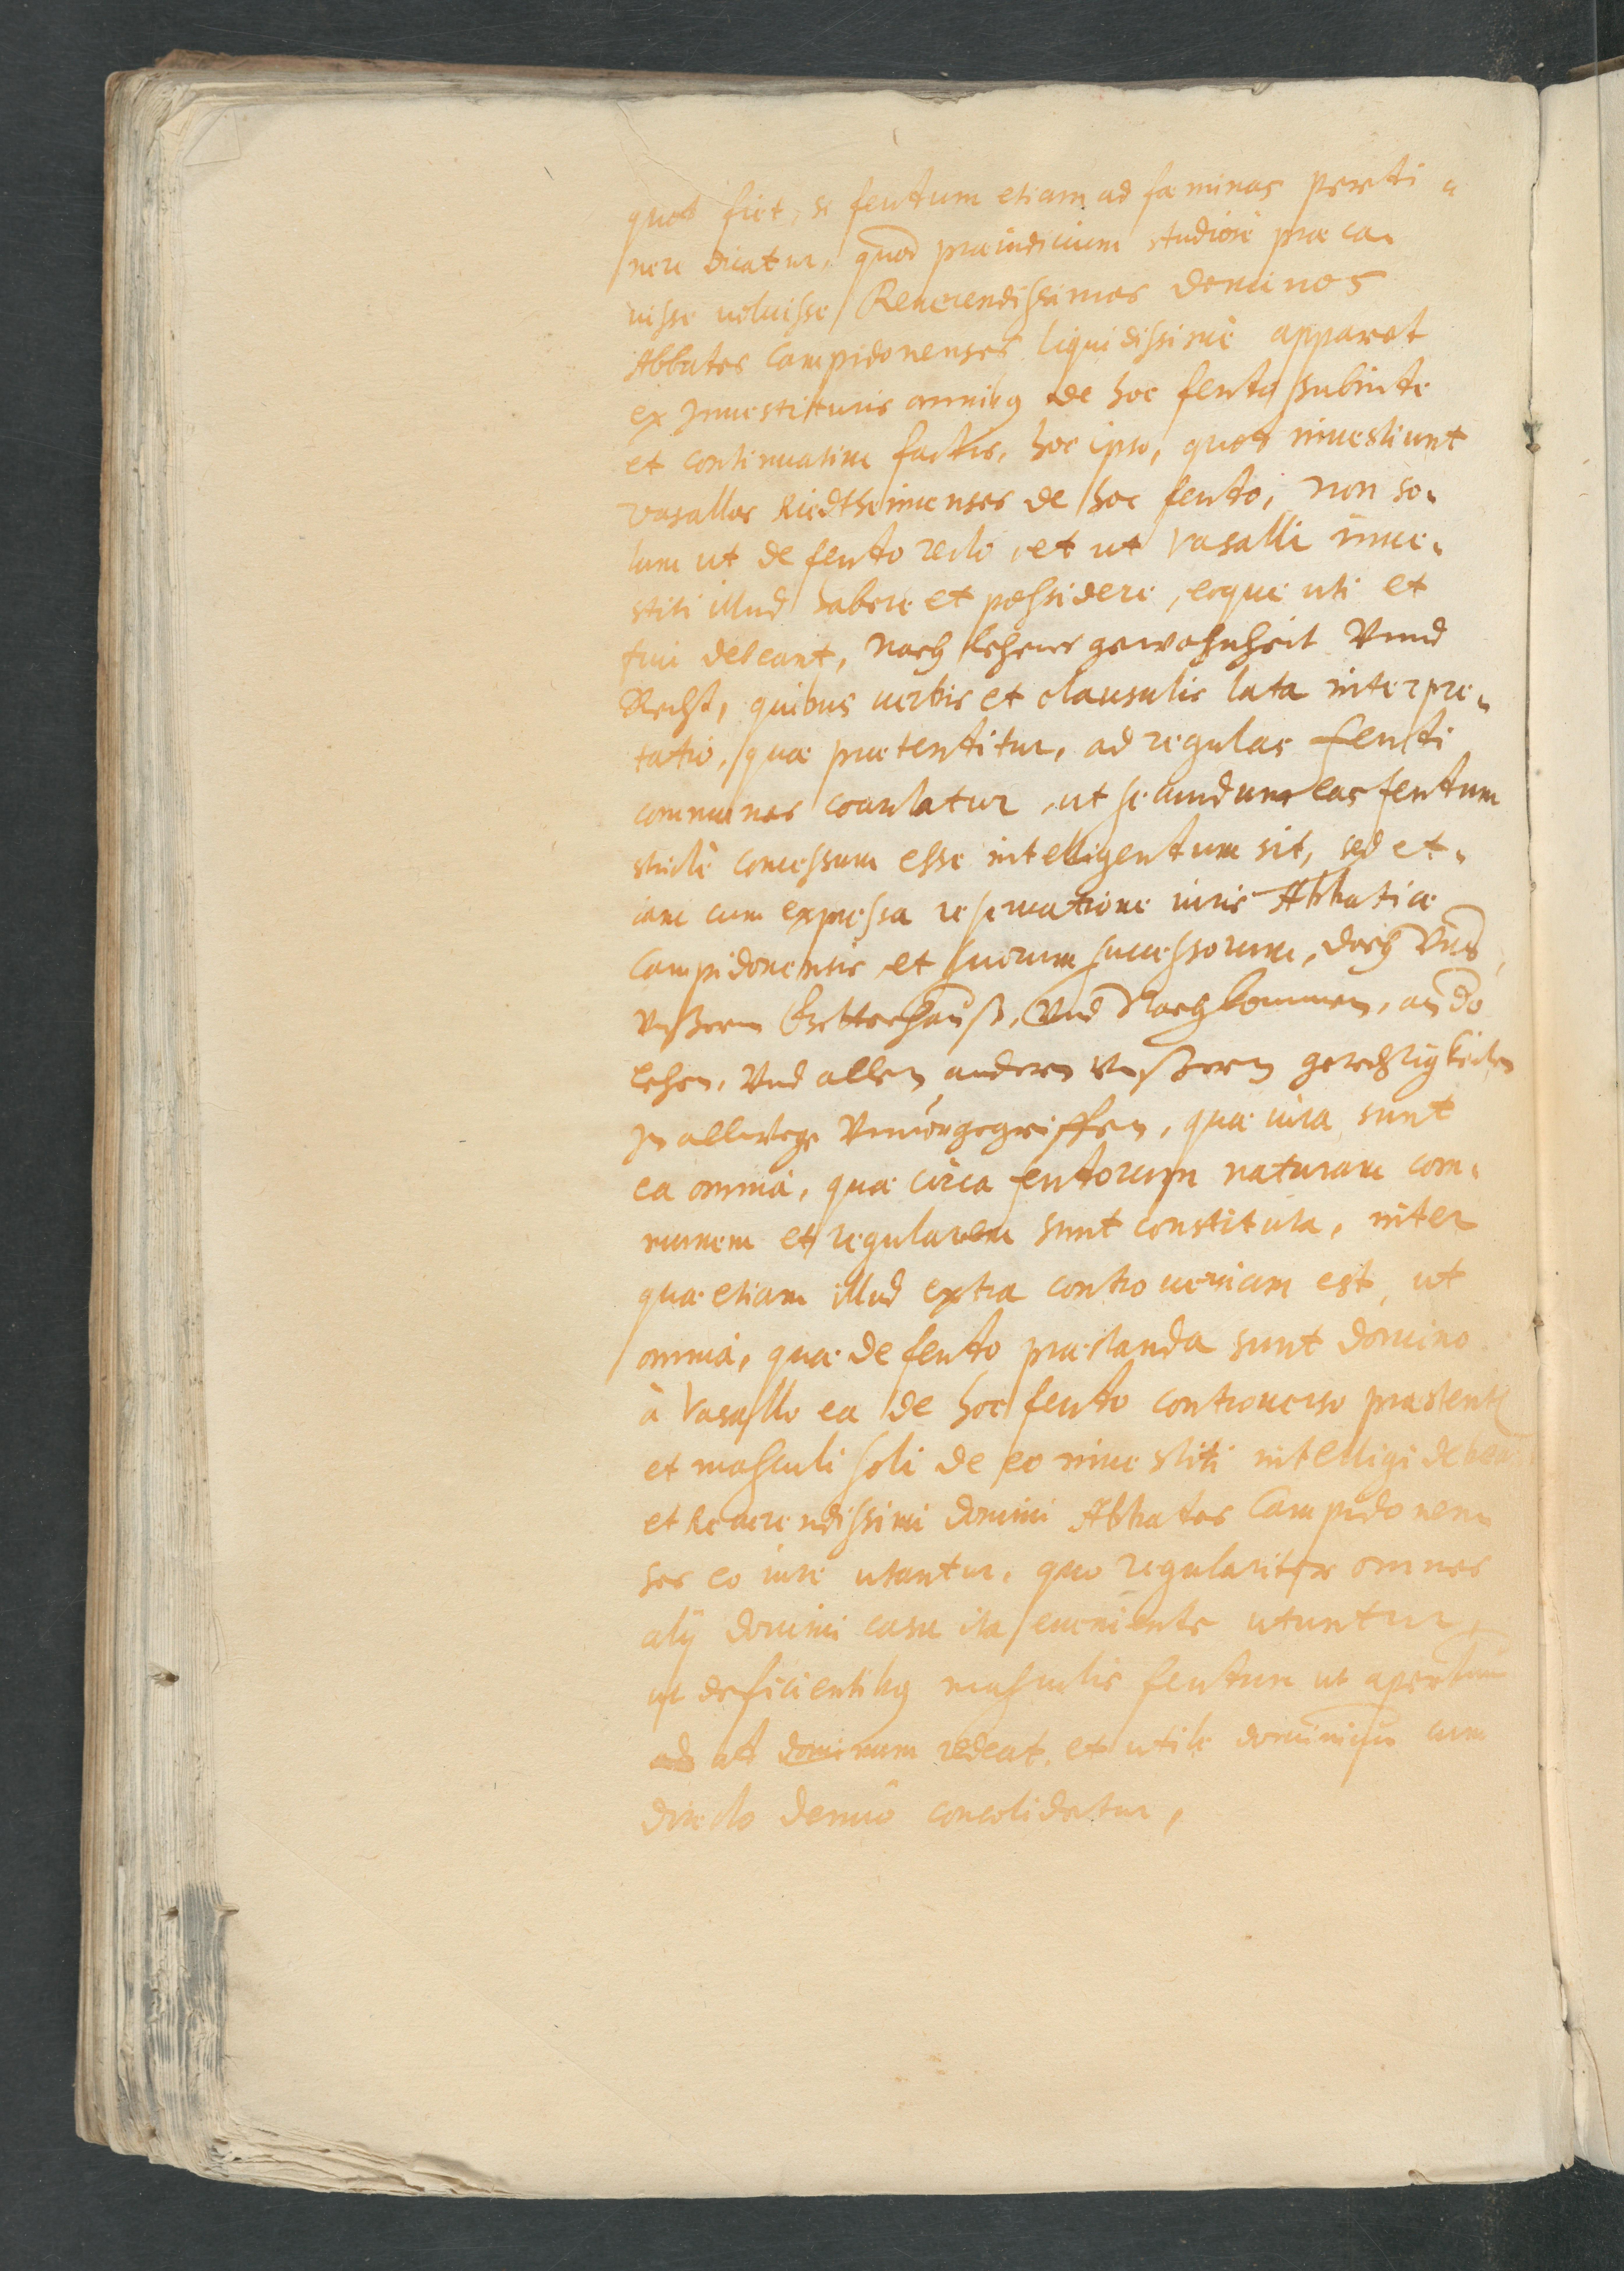 quod fiet, si feudum etiam ad fæminas perti-
nere dicatur, quod præiudicium studiosè præca-
uisse uoluisse Reuerendissimos dominos
Abbates Campidonenses liquidissimè apparet
ex Inuestituris omnibꝰ de hoc feudo subinde
et continuatim factis, hoc ipso, quod inuestiunt
Vasallos Riedtheimenses de hoc feudo, non so-
lum ut de feudo recto, et ut Vasalli inue-
stiti illud habere et possidere, eoque uti et
frui debeant, nach lehens gewohnheit Vnnd
Recht, quibus uerbis et clausulis lata interpre-
tatio, quæ prætenditur, ad regulas feudi
communes coarctatur, ut secundum eas feudum
strictè concessum esse intelligendum sit, sed et-
iam cum expressa reseruatione iuris Abbatiæ
Campidonensis et suorum successorum, doch Vns,
Vnßerm Gottschauß, Vnd Nachkommen, an do
lehen, Vnd allen andern Vnßern gerechtigkeiten
In allwege Vnuorgegriffen, quæ iura sunt
ea omnia, quæ circa feudorum naturam com-
munem et regularem sunt constituta, inter
quæ etiam illud extra controuersiam est, ut
omnia, quæ de feudo præstanda sunt domino
à Vasallo ea de hoc feudo controuerso præstent
et masculi soli de eo inuestiti intelligi debeant
et Reuerendissimi domini Abbates Campidonen-
ses eo iure utantur, quo regulariter omnes
alij domini casu ita eueniente utuntur,
ut deficientibꝰ masculis feudum ut apertum
ad dominum redeat, et utile dominium cum
directo denuò consolidetur,